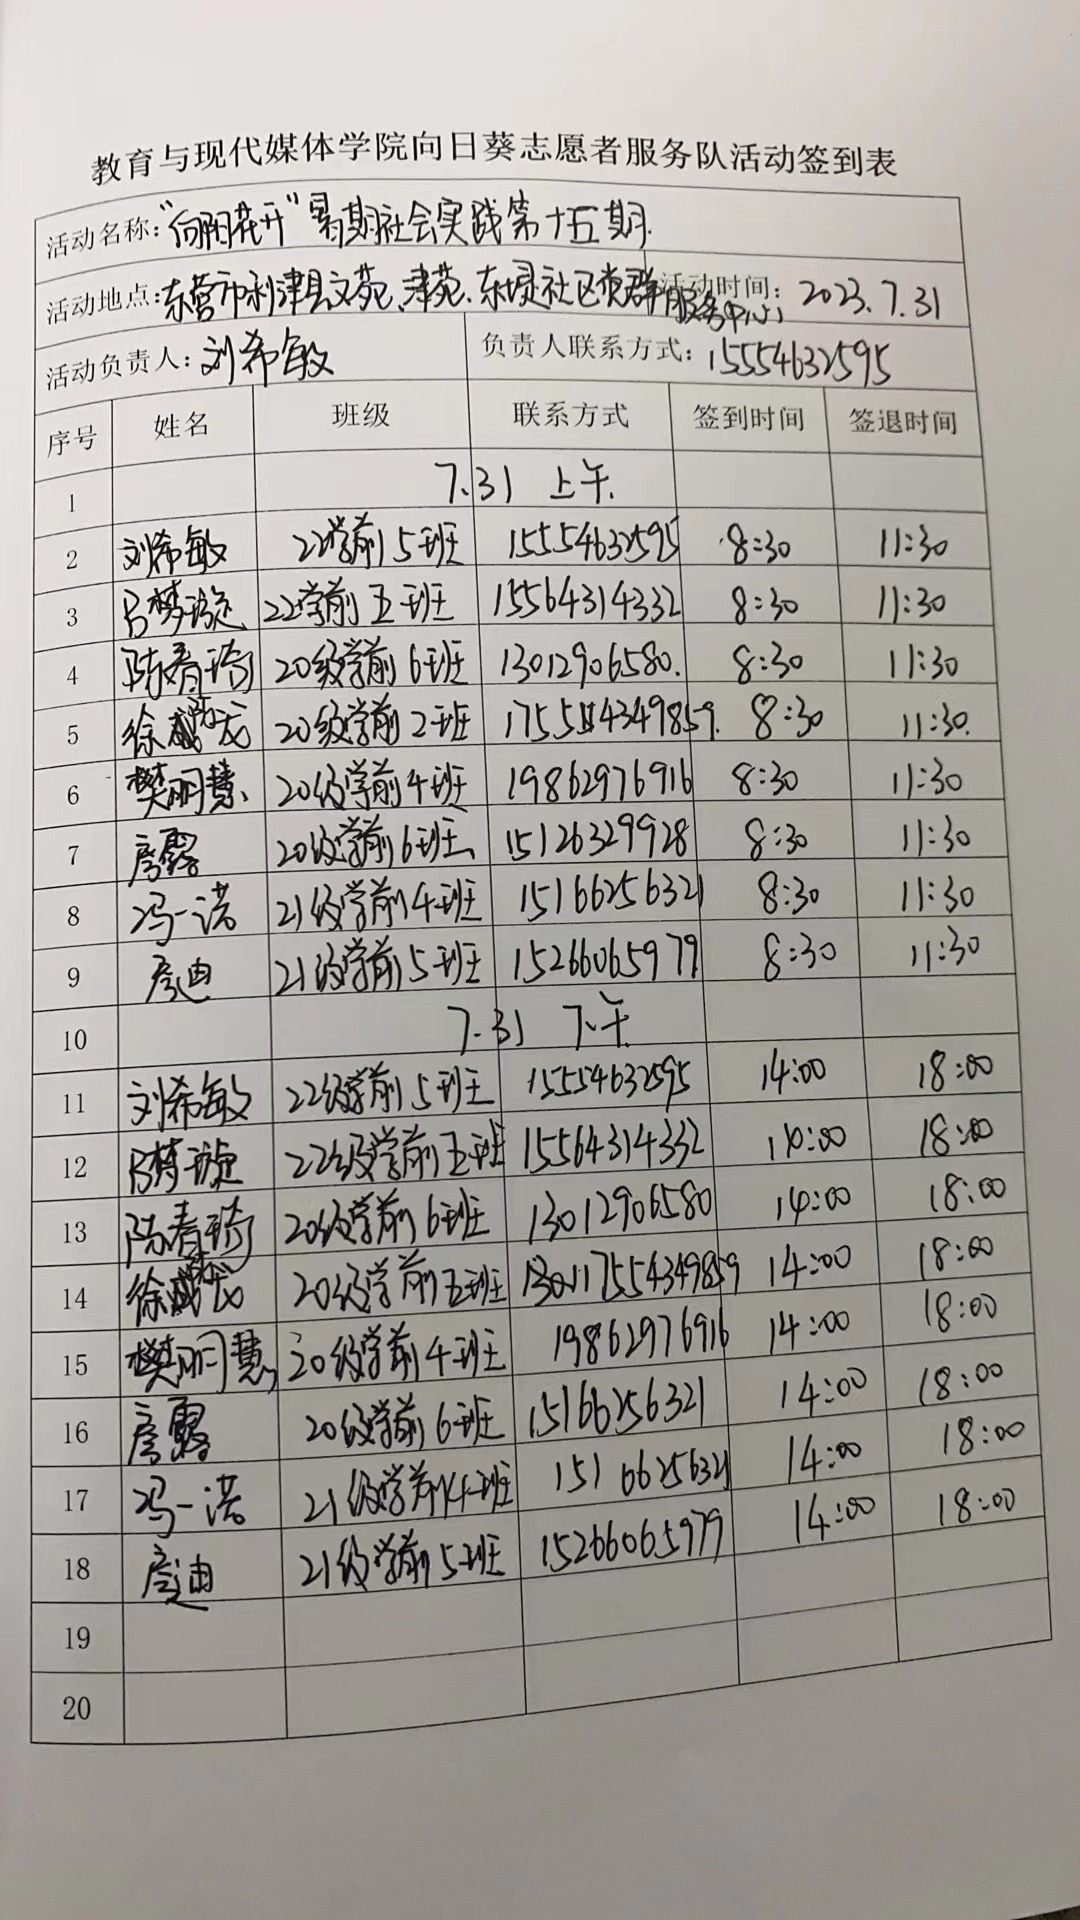 教育与现代媒体学院向日葵志愿者服务队活动签到表
活动名称：“向阳花开”暑期社会实践第十五期
活动地点：东营市利津县文苑、津苑、东堤社区党群服务中心 活动时间：2023.7.31
活动负责人：刘希敏 负责人联系方式：15554632595
序号 姓名 班级 联系方式 签到时间 签退时间
1 7.31 上午
2 刘希敏 22学前5班 15554632595 8:30 11:30
3 吕梦璇 22学前五班 15564314332 8:30 11:30
4 陈春琦 20级学前6班 13012906580 8:30 11:30
5 徐 龙 20级学前2班 8:30 11:30
6 樊丽慧 20级学前4班 19862976916 8:30 11:30
7 房露 20级学前6班 15126329928 8:30 11:30
8 冯一诺 21级学前4班 15166256321 8:30 11:30
9 房迪 21级学前5班 15266065979 8:30 11:30
10 7.31 下午
11 刘希敏 22级学前5班 15554632595 14:00 18:00
12 吕梦璇 22级学前五班 15564314332 14:00 18:00
13 陈春琦 20级学前6班 13012906580 14:00 18:00
14 徐 龙 20级学前五班 17554349859 14:00 18:00
15 樊丽慧 20级学前4班 19862976916 14:00 18:00
16 房露 20级学前6班 15166256321 14:00 18:00
17 冯一诺 21级学前4班 15166256321 14:00 18:00
18 房迪 21级学前5班 15266065979 14:00 18:00
19
20